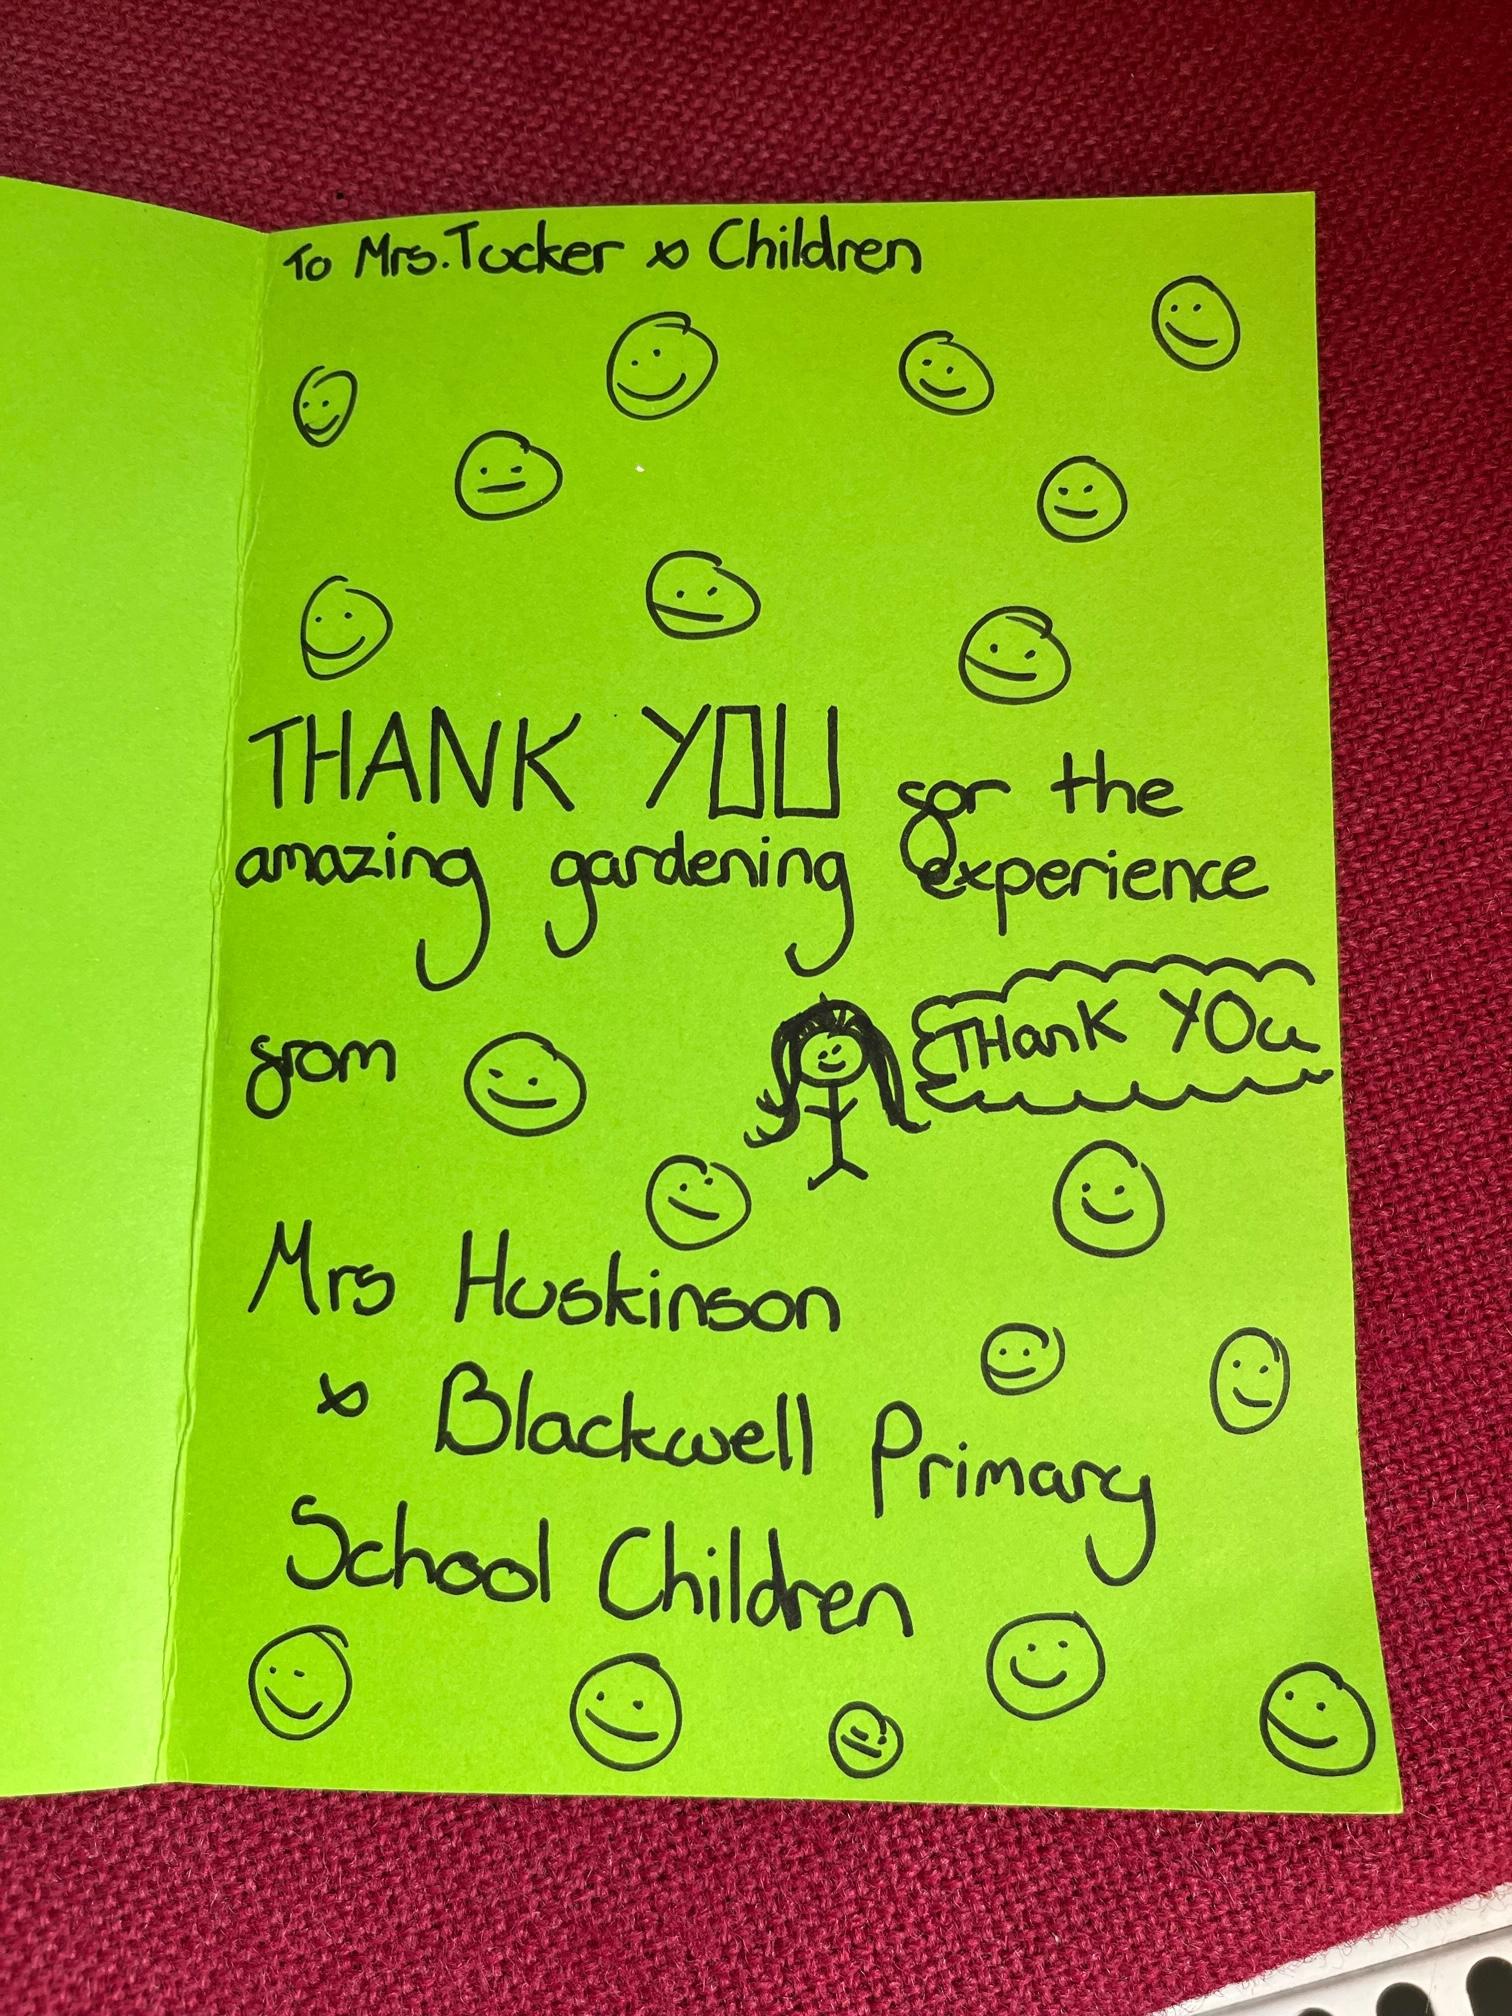 To Mrs. Tucker & Children
THANK YOU for the
amazing gardening experience
THank YOu
from
Mrs Huskinson
& Blackwell Primary
School Children